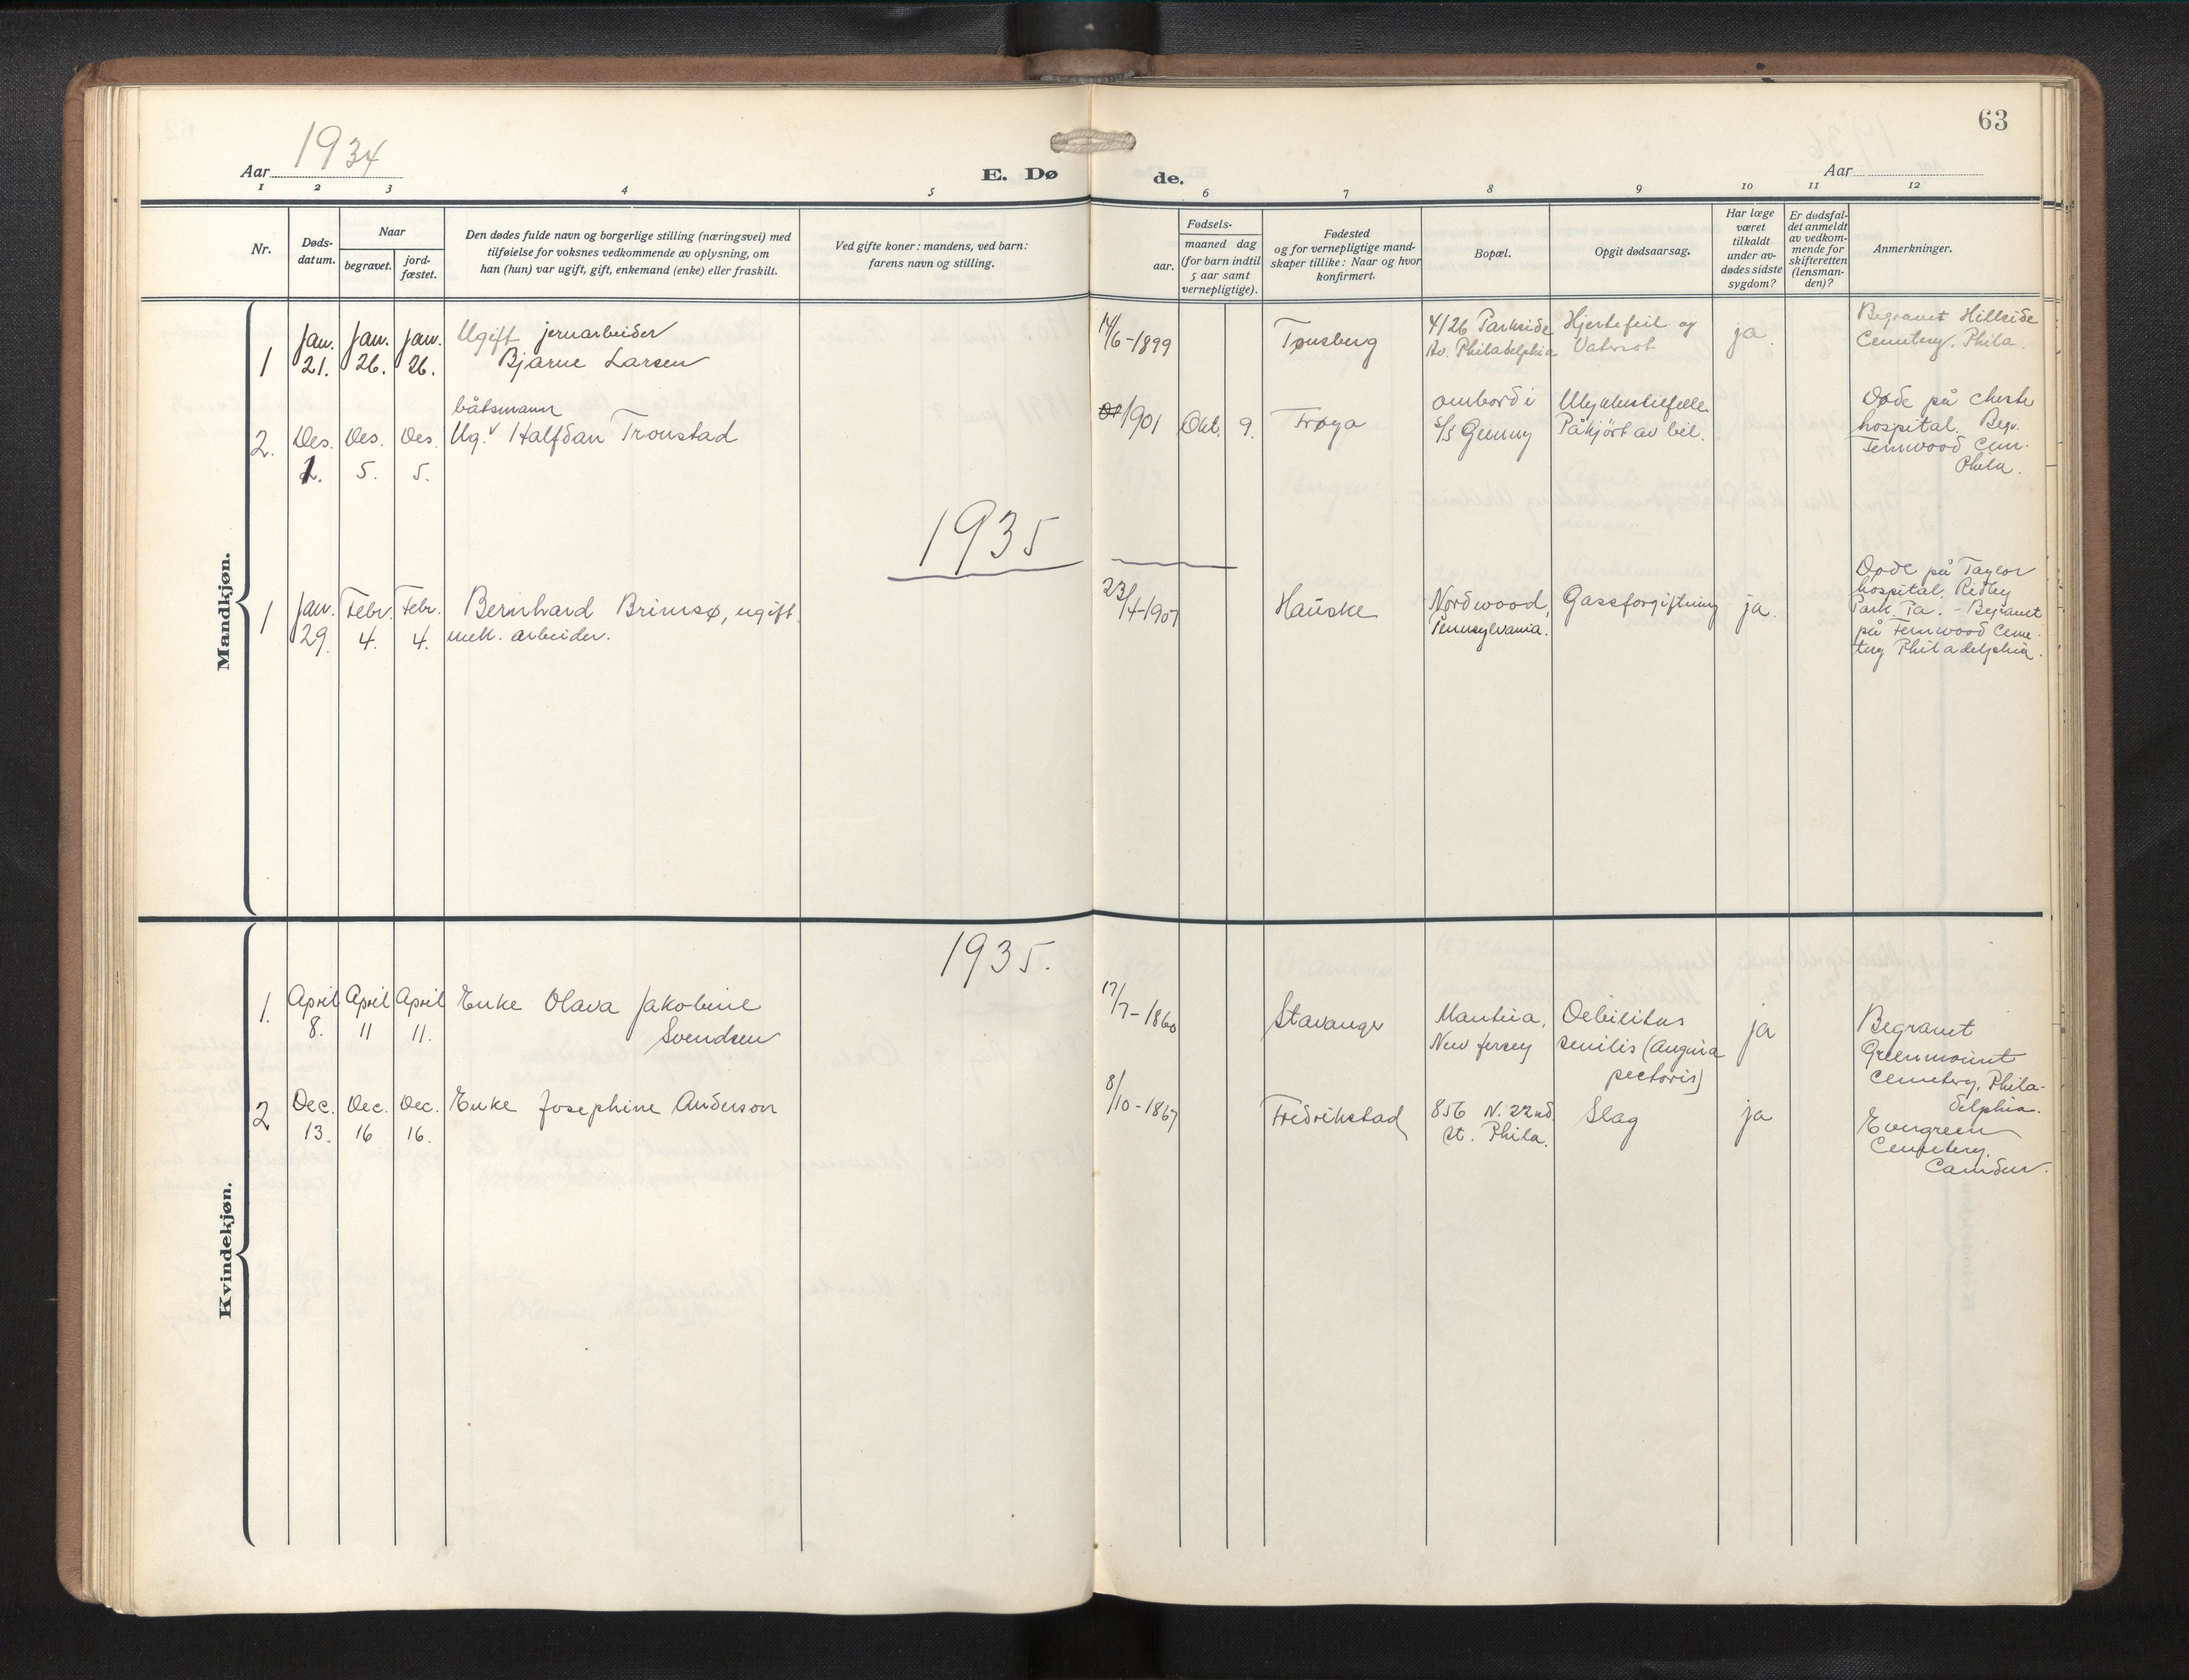 63
Aar 1934
E. Døde.
Aar
1 2 3 4 5 6 7 8 9 10 11 12
Nr.
Døds-
datum.
Naar
begravet.
jord-
fæstet.
Den dødes fulde navn og borgerlige stilling (næringsvei) med
tilføielse for voksnes vedkommende av oplysning, om
han (hun) var ugift, gift, enkemand (enke) eller fraskilt.
Ved gifte koner: mandens, ved barn:
farens navn og stilling.
Fødsels-
aar.
maaned dag
(for barn indtil
5 aar samt
vernepligtige).
Fødested
og for vernepligtige mand-
skaper tillike: Naar og hvor
konfirmert.
Bopæl.
Opgit dødsaarsag.
Har læge
været
tilkaldt
under av-
dødes sidste
sygdom?
Er dødsfal-
det anmeldt
av vedkom-
mende for
skifteretten
(lensman-
den)?
Anmerkninger.
Mandkjøn.
1
Jan.
21.
Jan.
26.
Jan.
26.
Ugift jernarbeider
Bjarne Larsen
14/6-1899
Tønsberg
4126 Parkside
Av. Philadelphia
Hjertefeil og
Vatersot
ja.
Begravet Hillside
Cemetery, Phila.
2.
Des.
1.
Des.
5.
Des.
5.
båtsmann
Ug. Halfdan Tronstad
1901
Okt.
9.
Frøya
ombord i
s/s Gunny
Ulykkestilfelle
Påkjört av bil.
Døde på Cheste
hospital. Begr.
Fernwood Cem.
Phila.
1935
1
Jan.
29.
Febr.
4.
Febr.
4.
Bernhard Brimsø, ugift.
mek. arbeider.
23/4-1907
Hauske
Nordwood,
Pennsylvania.
Gassforgiftning
ja.
Døde på Taylor
hospital, Ridley
Park, Pa. - Begravet
på Fernwood Ceme-
tery Philadelphia.
Kvindekjøn.
1935.
1.
April
8.
April
11
April
11.
Enke Olava Jakobine
Svendsen
17/7-1860
Stavanger
Mantua,
New Jersey
Debilitas
senilis (Angina
pectoris)
ja
Begravet
Greenmount
Cemetery, Phila-
delphia.
2
Dec.
13.
Dec.
16
Dec.
16.
Enke Josephine Anderson
8/10-1867
Fredrikstad
856 N. 22nd
st. Phila.
Slag
ja
Evergreen
Cemetery,
Camden.